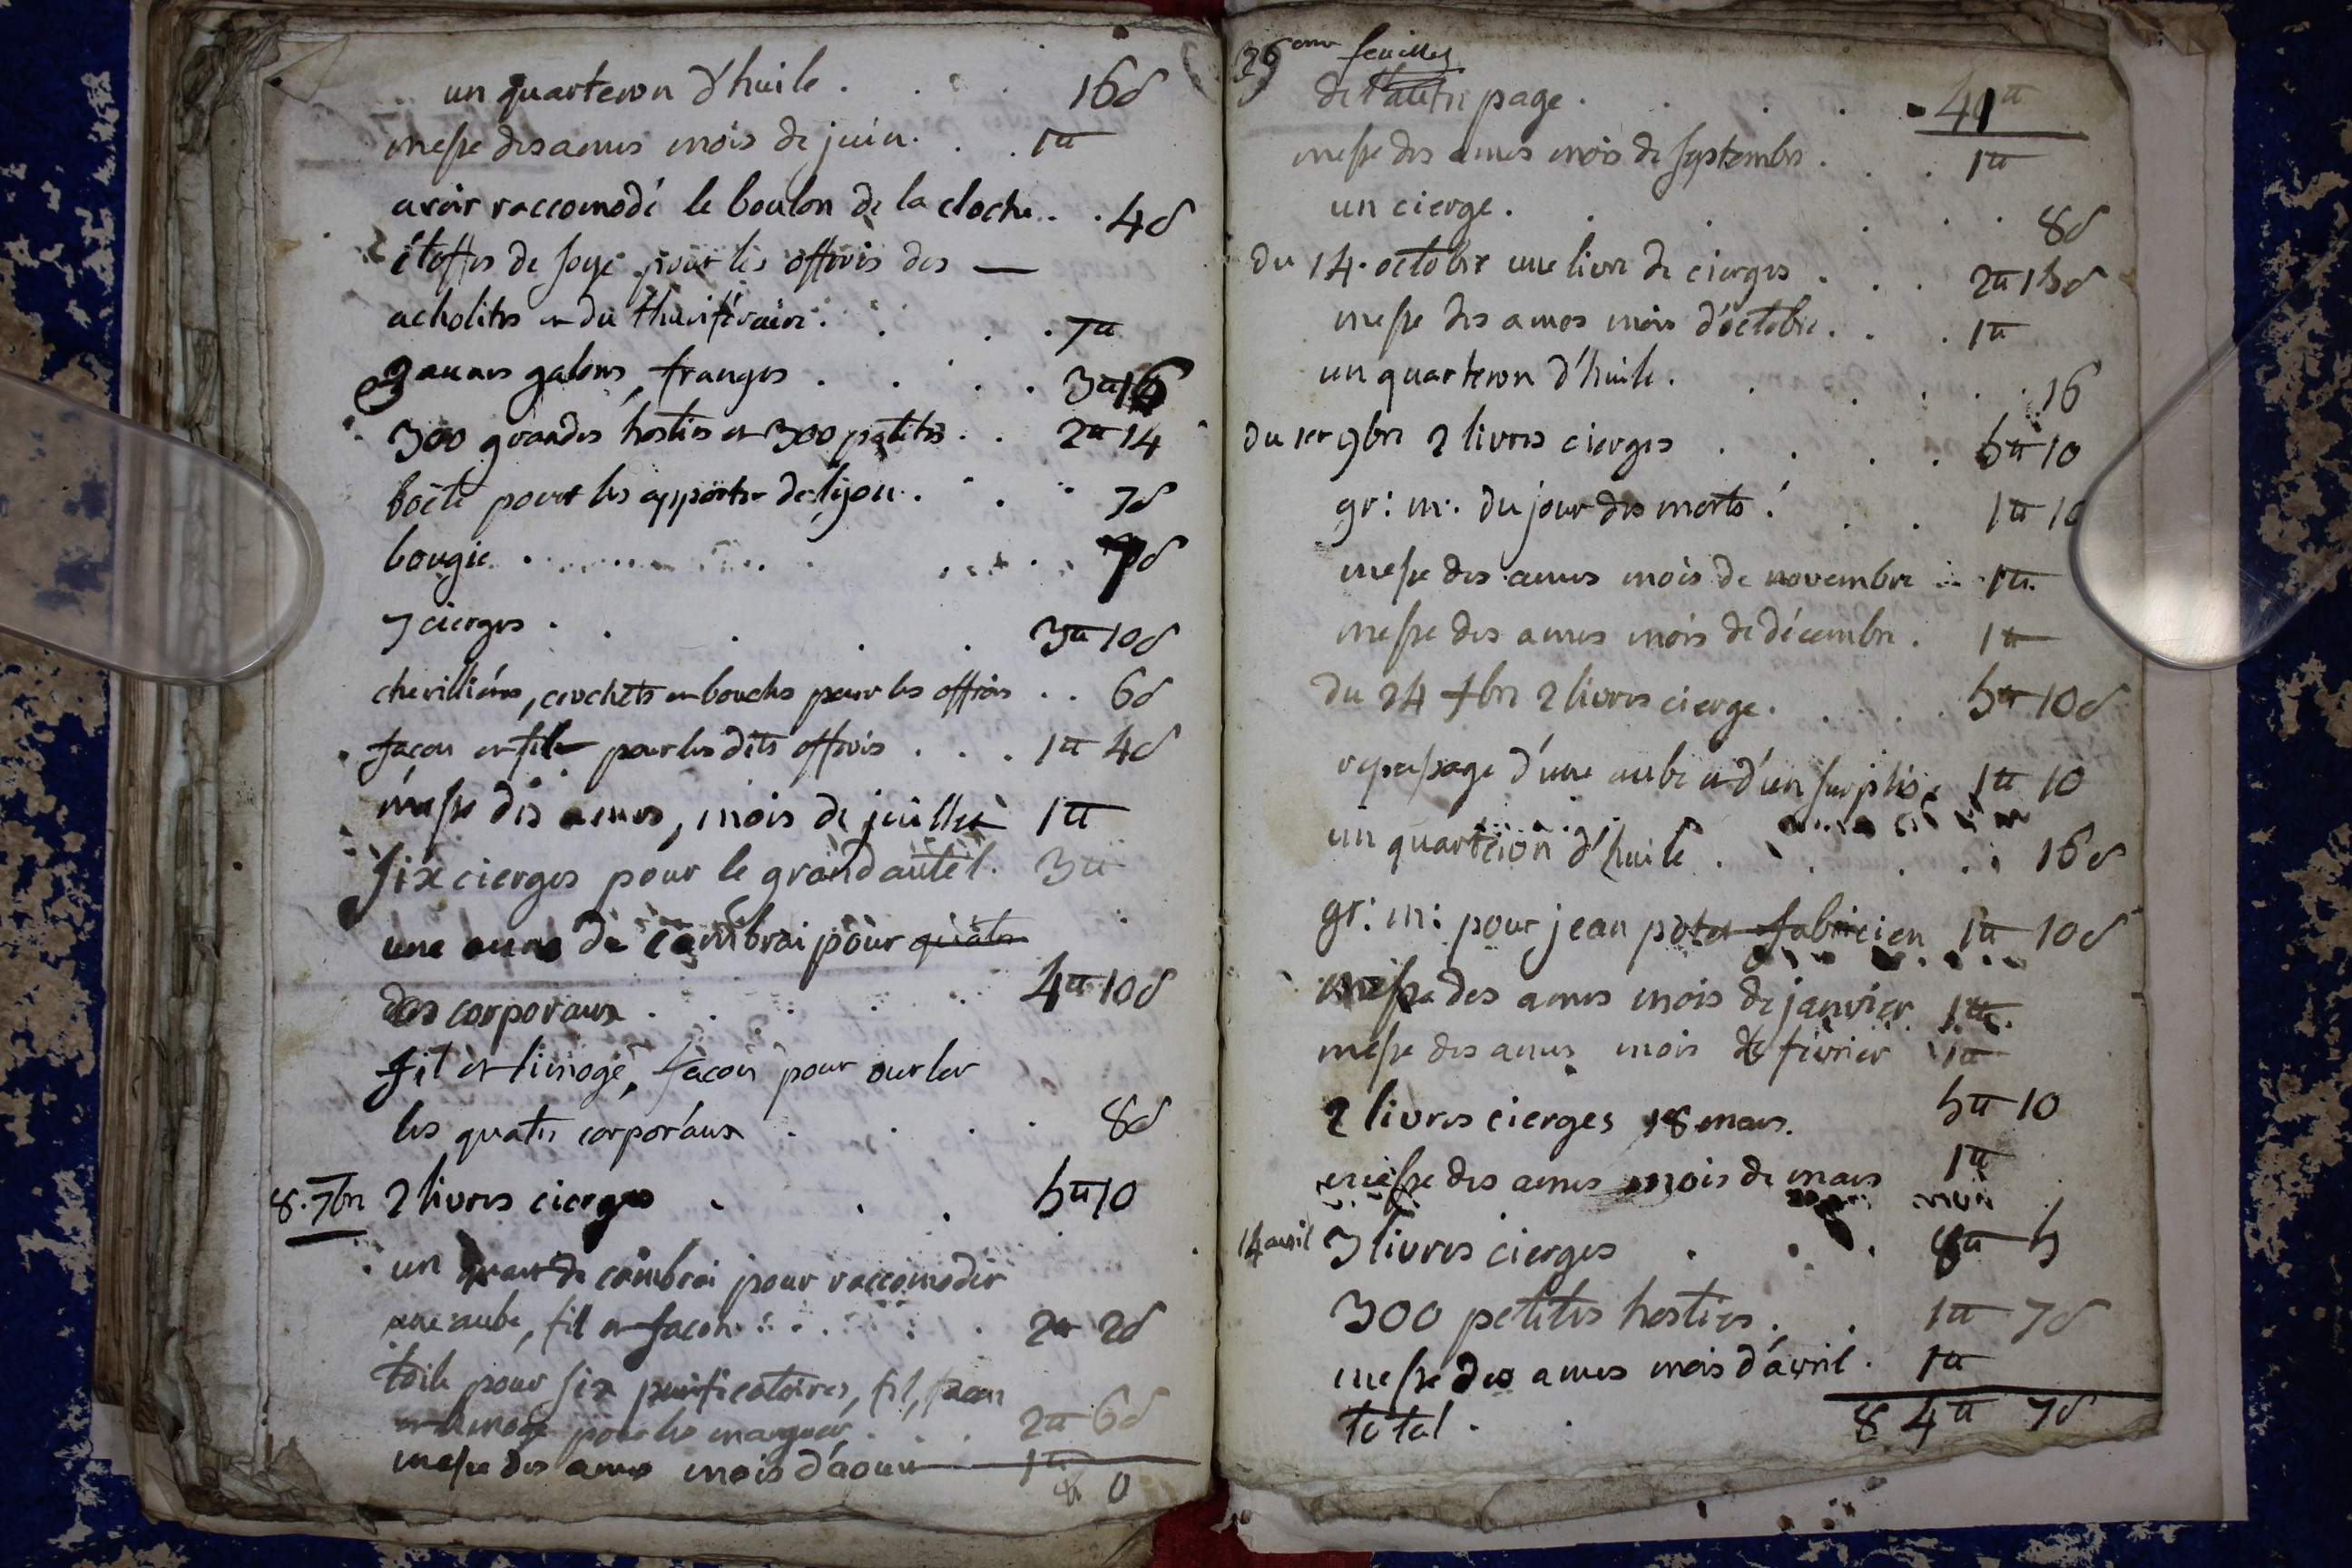 un quarteron d'huile . . . 16 s
messe des ames mois de juin . . 1 ₶
avoir raccomodé le boulon de la cloche . . 4 s
étoffes de soye pour les offrois des —
acholites et du thuriféraire . . . 7 ₶
9 aunes galons, franges . . . . 3 ₶ 16
300 grandes hosties et 300 petites . . 2 ₶ 14
boëte pour les apporter de lyon . . . 7 s
bougie . . . 7 s
7 cierges . . . . 3 ₶ 10 s
chevillières, crochets et boucles pour les offrois . . 6 s
facon et fil pour les dits offrois . . . 1 ₶ 4 s
messe des ames, mois de juillet 1 ₶
six cierges pour le grand autel . 3 ₶
une aune de cambrai pour quatre
des corporaux . . . 4 ₶ 10 s
fil et limoge, facon pour ourler
les quatre corporaux . . . . 8 s
8. 7bre 2 livres cierges . . . 5 ₶ 10
un quart de cambrai pour raccomoder
une aube, fil et facon . . . 2 ₶ 2 s
toile pour six purificatoires, fil, facon
et limoge pour les marquer . . . 2 ₶ 6 s
messe des ames mois d'aoust 1 ₶
0
feuilles
de l'autre page . . . . 41 ₶
messe des ames mois de septembre . . . 1 ₶
un cierge . . . . . 8 s
du 14 octobre une livre de cierges . . . 2 ₶ 15 s
messe des ames mois d'octobre . . . 1 ₶
un quarteron d'huile . . . . . 16
du 1er 9bre 2 livres cierges . . . . 5 ₶ 10
gr: m: du jour des morts . . . 1 ₶ 10
messe des ames mois de novembre . . 1 ₶
messe des ames mois de décembre . 1 ₶
du 24 Xbre 2 livres cierge . . . . 5 ₶ 10 s
repassage d'une aube et d'un surplis . 1 ₶ 10
un quarteron d'huile . . . . 16 s
gr: m: pour jean potet fabricien 1 ₶ 10 s
messe des ames mois de janvier 1 ₶
messe des ames mois de février 1 ₶
2 livres cierges 18 mars . 5 ₶ 10
messe des ames mois de mars 1 ₶
14 avril 3 livres cierges . . . 8 ₶ 5
300 petites hosties . . 1 ₶ 7 s
messe des ames mois d'avril . 1 ₶
total . . 84 ₶ 7 s